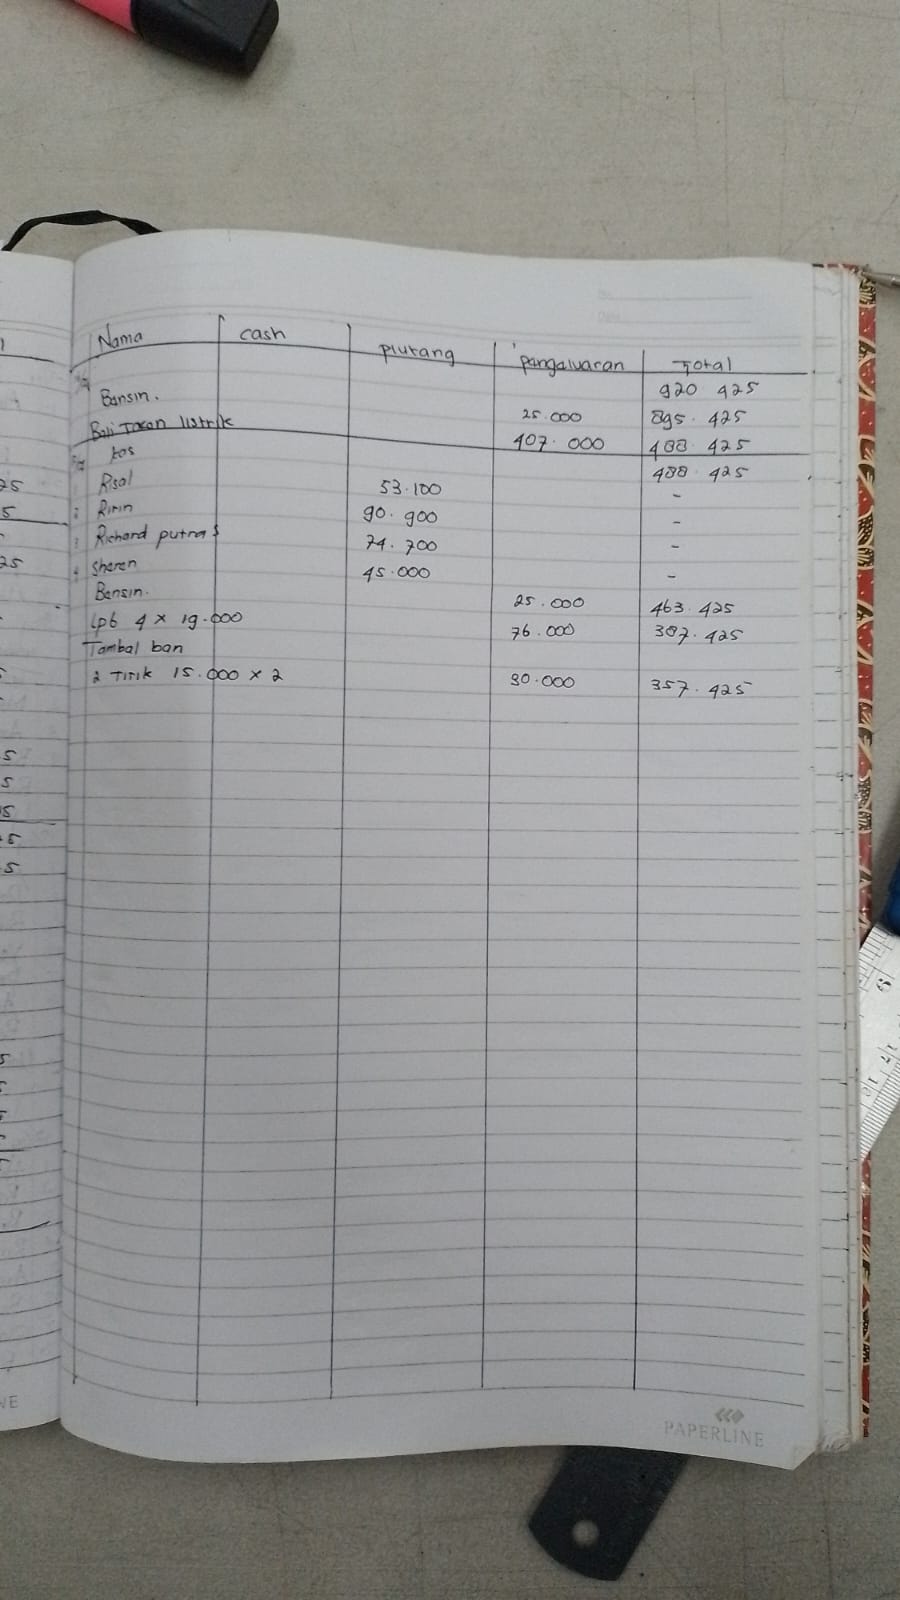 Nama cash piutang pangaluaran Total
920 425
Bansin. 25.000 895. 425
Bali Tokan listrik 407. 000 488 425
kos 488. 425
Risal 53.100 -
Ririn 90. 900 -
Richard putra 74. 700 -
4 Sheren 45.000 -
Bensin. 25.000 463. 425
Lpb 4 x 19.000 76.000 387. 425
Tambal ban
2 Titik 15.000 x 2 30.000 357. 425
PAPERLINE